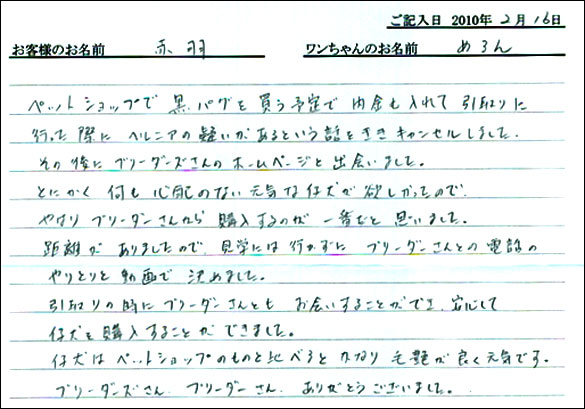 ご記入日 2010年 2月 16日
お客様のお名前 赤羽 ワンちゃんのお名前 めろん
ペットショップで 黒パグを買う予定で 内金も入れて 引取りに
行った際に ヘルニアの疑いがあるという話をきき キャンセルしました.
その後に ブリーダーズさんの ホームページと 出会いました。
とにかく 何も 心配のない 元気な 仔犬が 欲しかったので
やはり ブリーダーさんから 購入するのが 一番だと 思いました。
距離が ありましたので、見学には行かずに ブリーダーさんとの 電話の
やりとりと 動画で 決めました。
引取りの時に ブリーダーさんとも お会いすることができ、安心して
仔犬を購入することができました。
仔犬は ペットショップのものと比べると かなり 毛艶が 良く 元気です。
ブリーダーズさん、ブリーダーさん、ありがとうございました。